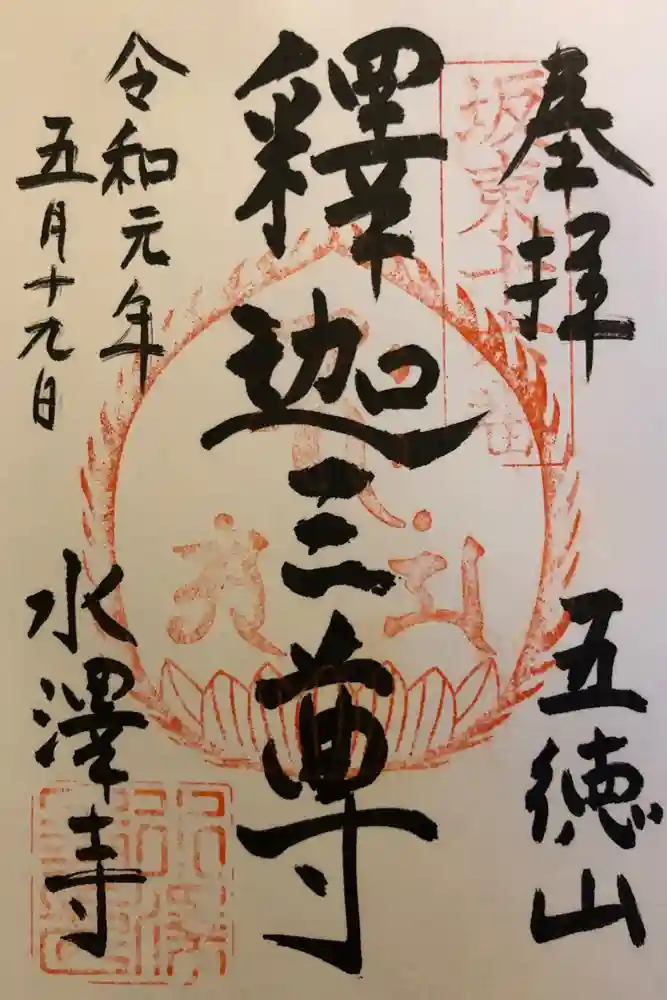 奉拝
坂東十六番
五徳山
釋迦三尊
令和元年
五月十九日
水澤寺